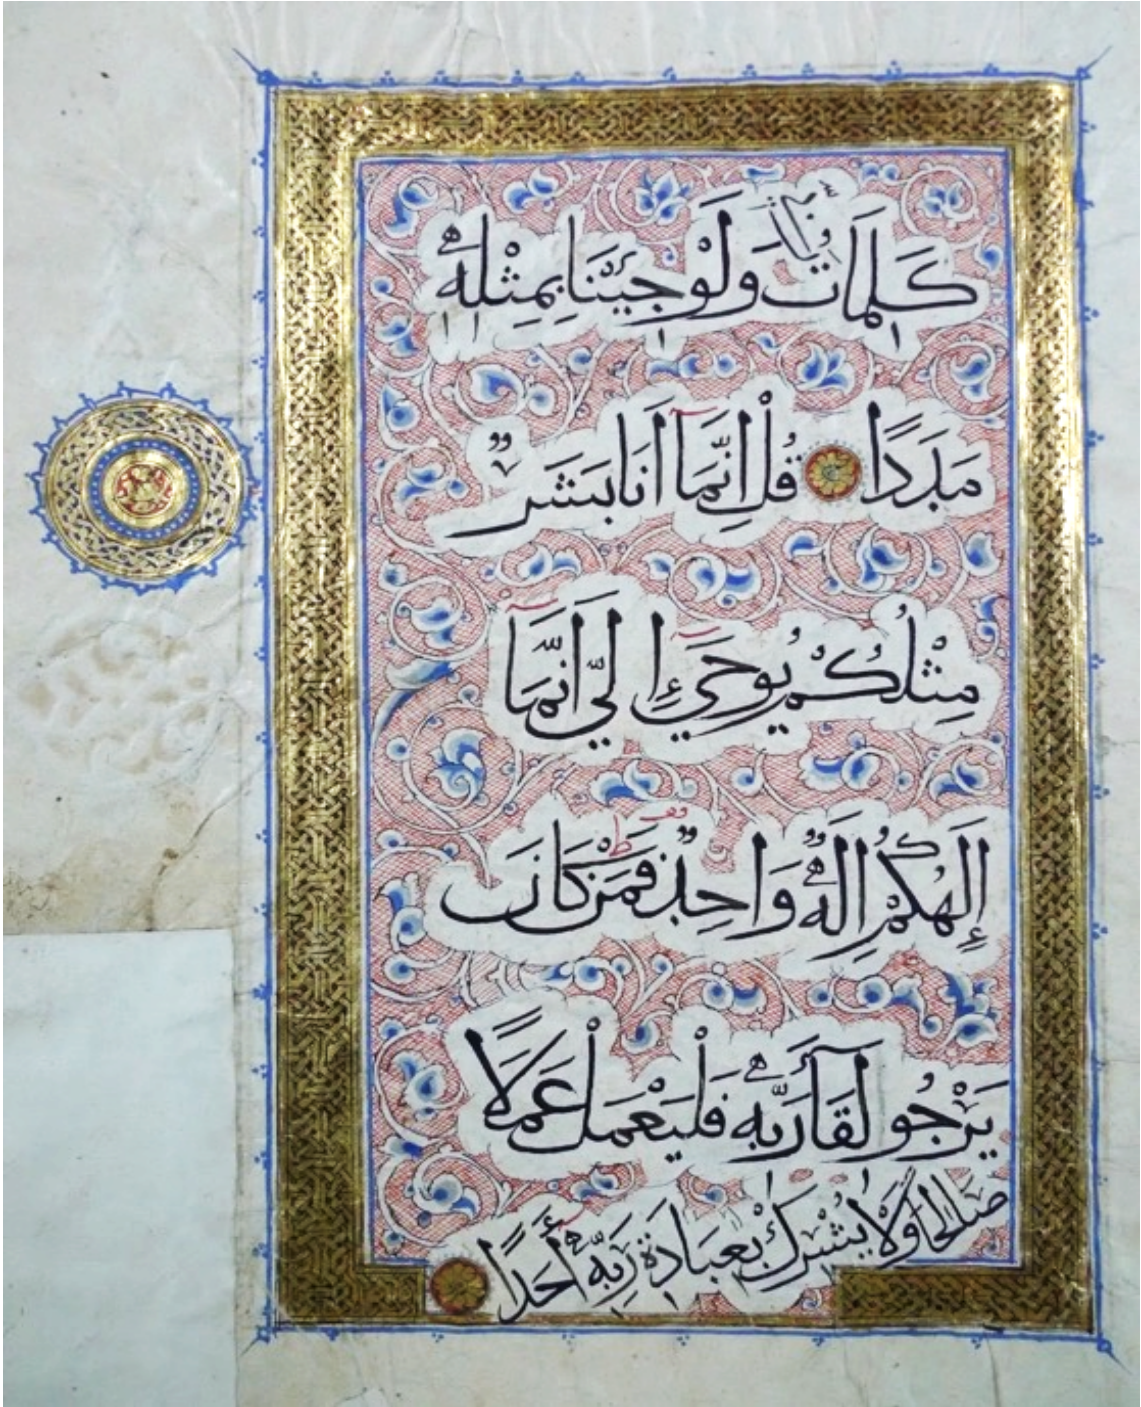 كَلِمَاتُ رَبِّي وَلَوْ جِيْنَا بِمِثْلِهِ
مَدَدًا قُلْ اِنَّمَآ اَنَا بَشَرٌ
مِثْلُكُمْ يُوحَىٓ اِلَيَّ اَنَّمَآ
إِلَهُكُمْ اِلَهٌ وَاحِدٌ فَمَنْ كَانَ
يَرْجُو لِقَآءَ رَبِّهِ فَلْيَعْمَلْ عَمَلًا
صَالِحًا وَلَا يُشْرِكْ بِعِبَادَةِ رَبِّهِٓ أَحَدًا